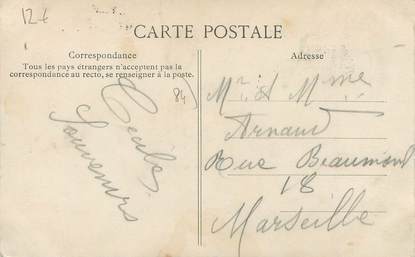 12€
CARTE POSTALE
Correspondance
Tous les pays étrangers n'acceptent pas la
correspondance au recto, se renseigner à la poste.
84
Souvenirs
Adresse
Mr. et Mme
Arnaud
Rue Beaumond
18
Marseille